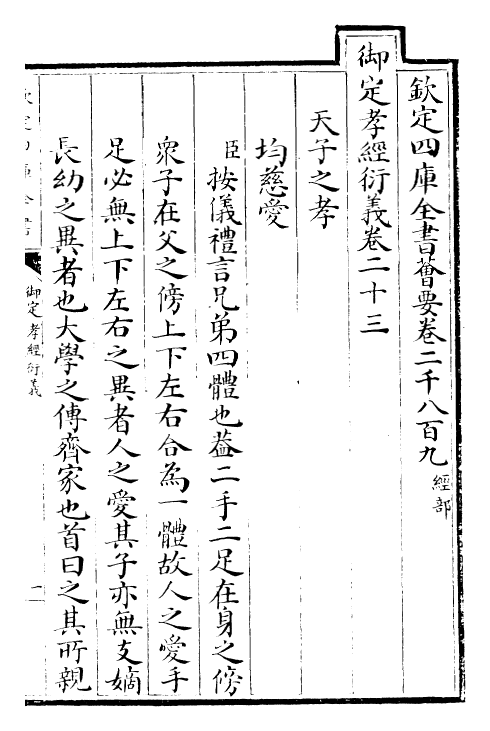 欽定四庫全書薈要卷二千八百九 經部
御定孝經衍義卷二十三
天子之孝
均慈愛
臣按儀禮言兄弟四體也葢二手二足在身之傍
衆子在父之傍上下左右合為一體故人之愛手
足必無上下左右之異者人之愛其子亦無支嫡
長幼之異者也大學之傳齊家也首曰之其所親
欽定四庫全書
御定孝經衍義
一